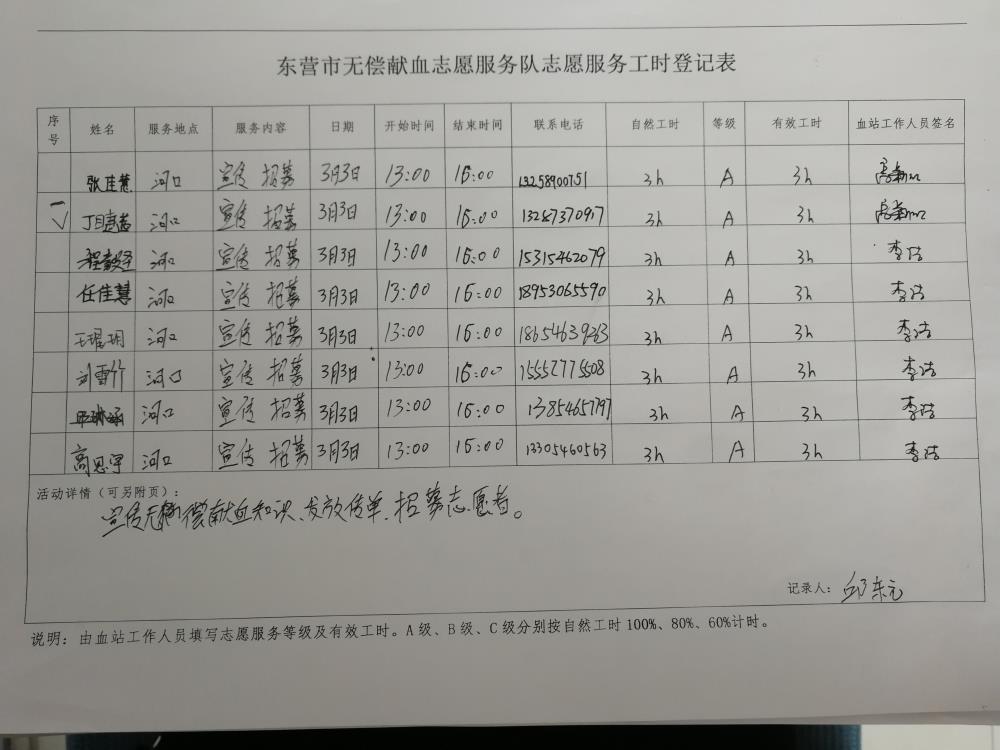 东营市无偿献血志愿服务队志愿服务工时登记表
序号 姓名 服务地点 服务内容 日期 开始时间 结束时间 联系电话 自然工时 等级 有效工时 血站工作人员签名
张佳慧 河口 宣传 招募 3月3日 13:00 16:00 13258900751 3h A 3h
河口 宣传 招募 3月3日 13:00 16:00 13287370917 3h A 3h
河口 宣传 招募 3月3日 13:00 16:00 15315462079 3h A 3h 李洁
任佳慧 河口 宣传 招募 3月3日 13:00 16:00 18953065590 3h A 3h 李洁
王琨玥 河口 宣传 招募 3月3日 13:00 16:00 18654639263 3h A 3h 李洁
刘雪竹 河口 宣传 招募 3月3日 13:00 16:00 15552775508 3h A 3h 李洁
河口 宣传 招募 3月3日 13:00 16:00 1385465797 3h A 3h 李洁
高思宇 河口 宣传 招募 3月3日 13:00 16:00 13305460563 3h A 3h 李洁
活动详情（可另附页）：
宣传无偿献血知识、发放传单、招募志愿者。
记录人： 邱东元
说明：由血站工作人员填写志愿服务等级及有效工时。A级、B级、C级分别按自然工时100%、80%、60%计时。